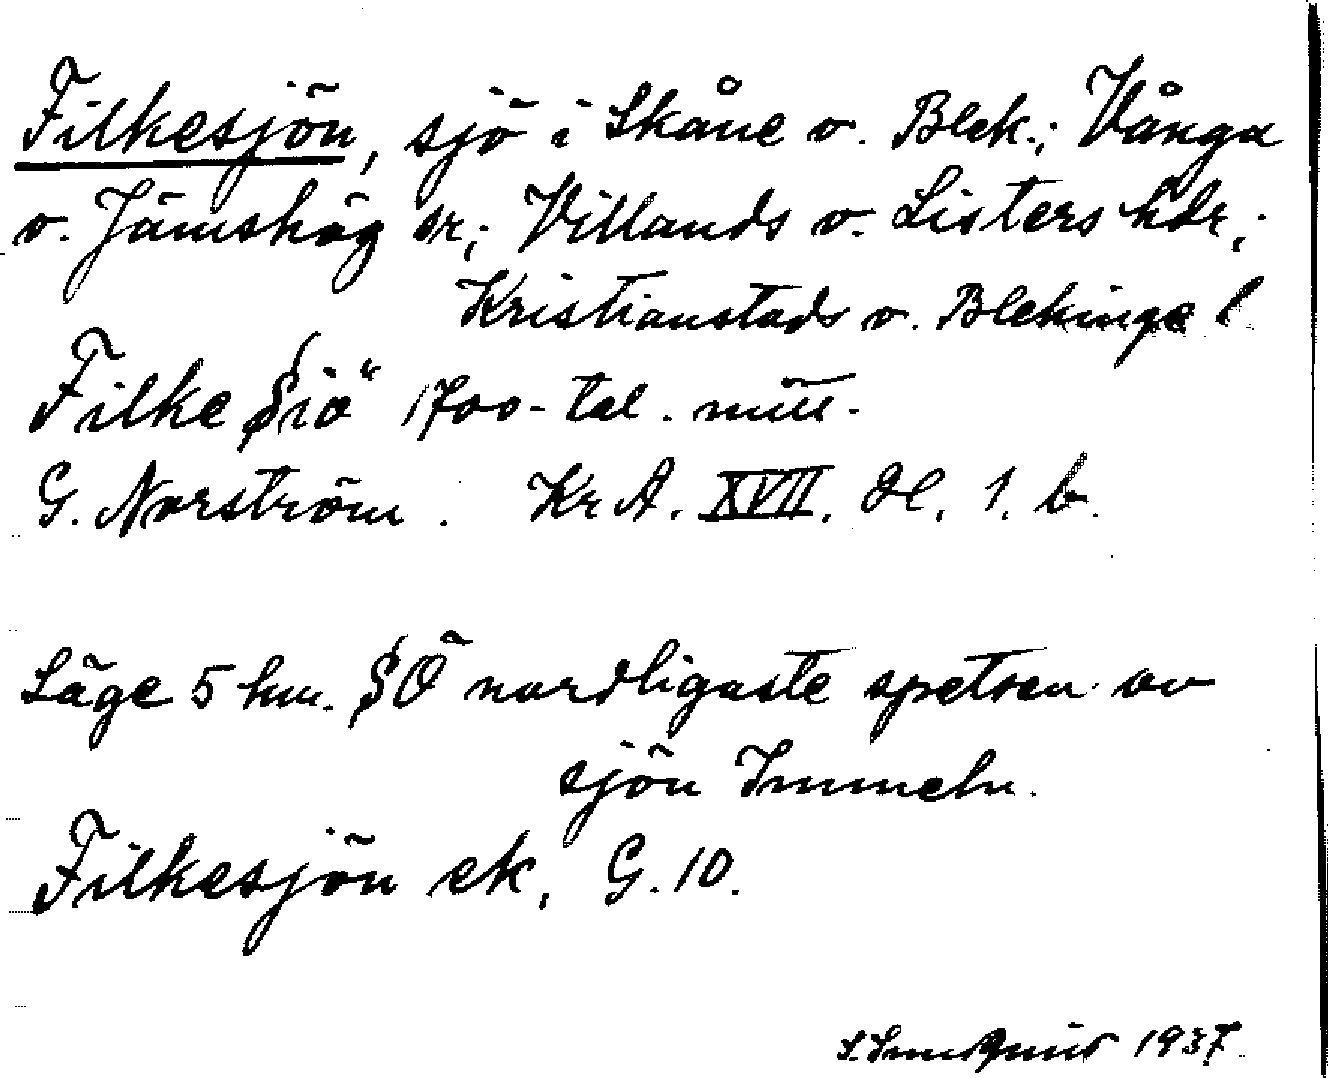 Filkesjön, sjö i Skåne o. Blek.; Vånga
o. Jämshög sr; Villands o. Listers hdr;
Kristianstads o. Blekinge l
Filke Siö" 1700-tal. mitt.
G. Norström. KrA. XVII. Hl. 1. b.
Läge 5 km. SÖ nordligaste spetsen av
sjön Immeln.
Filkesjön ek. G. 10.
1937